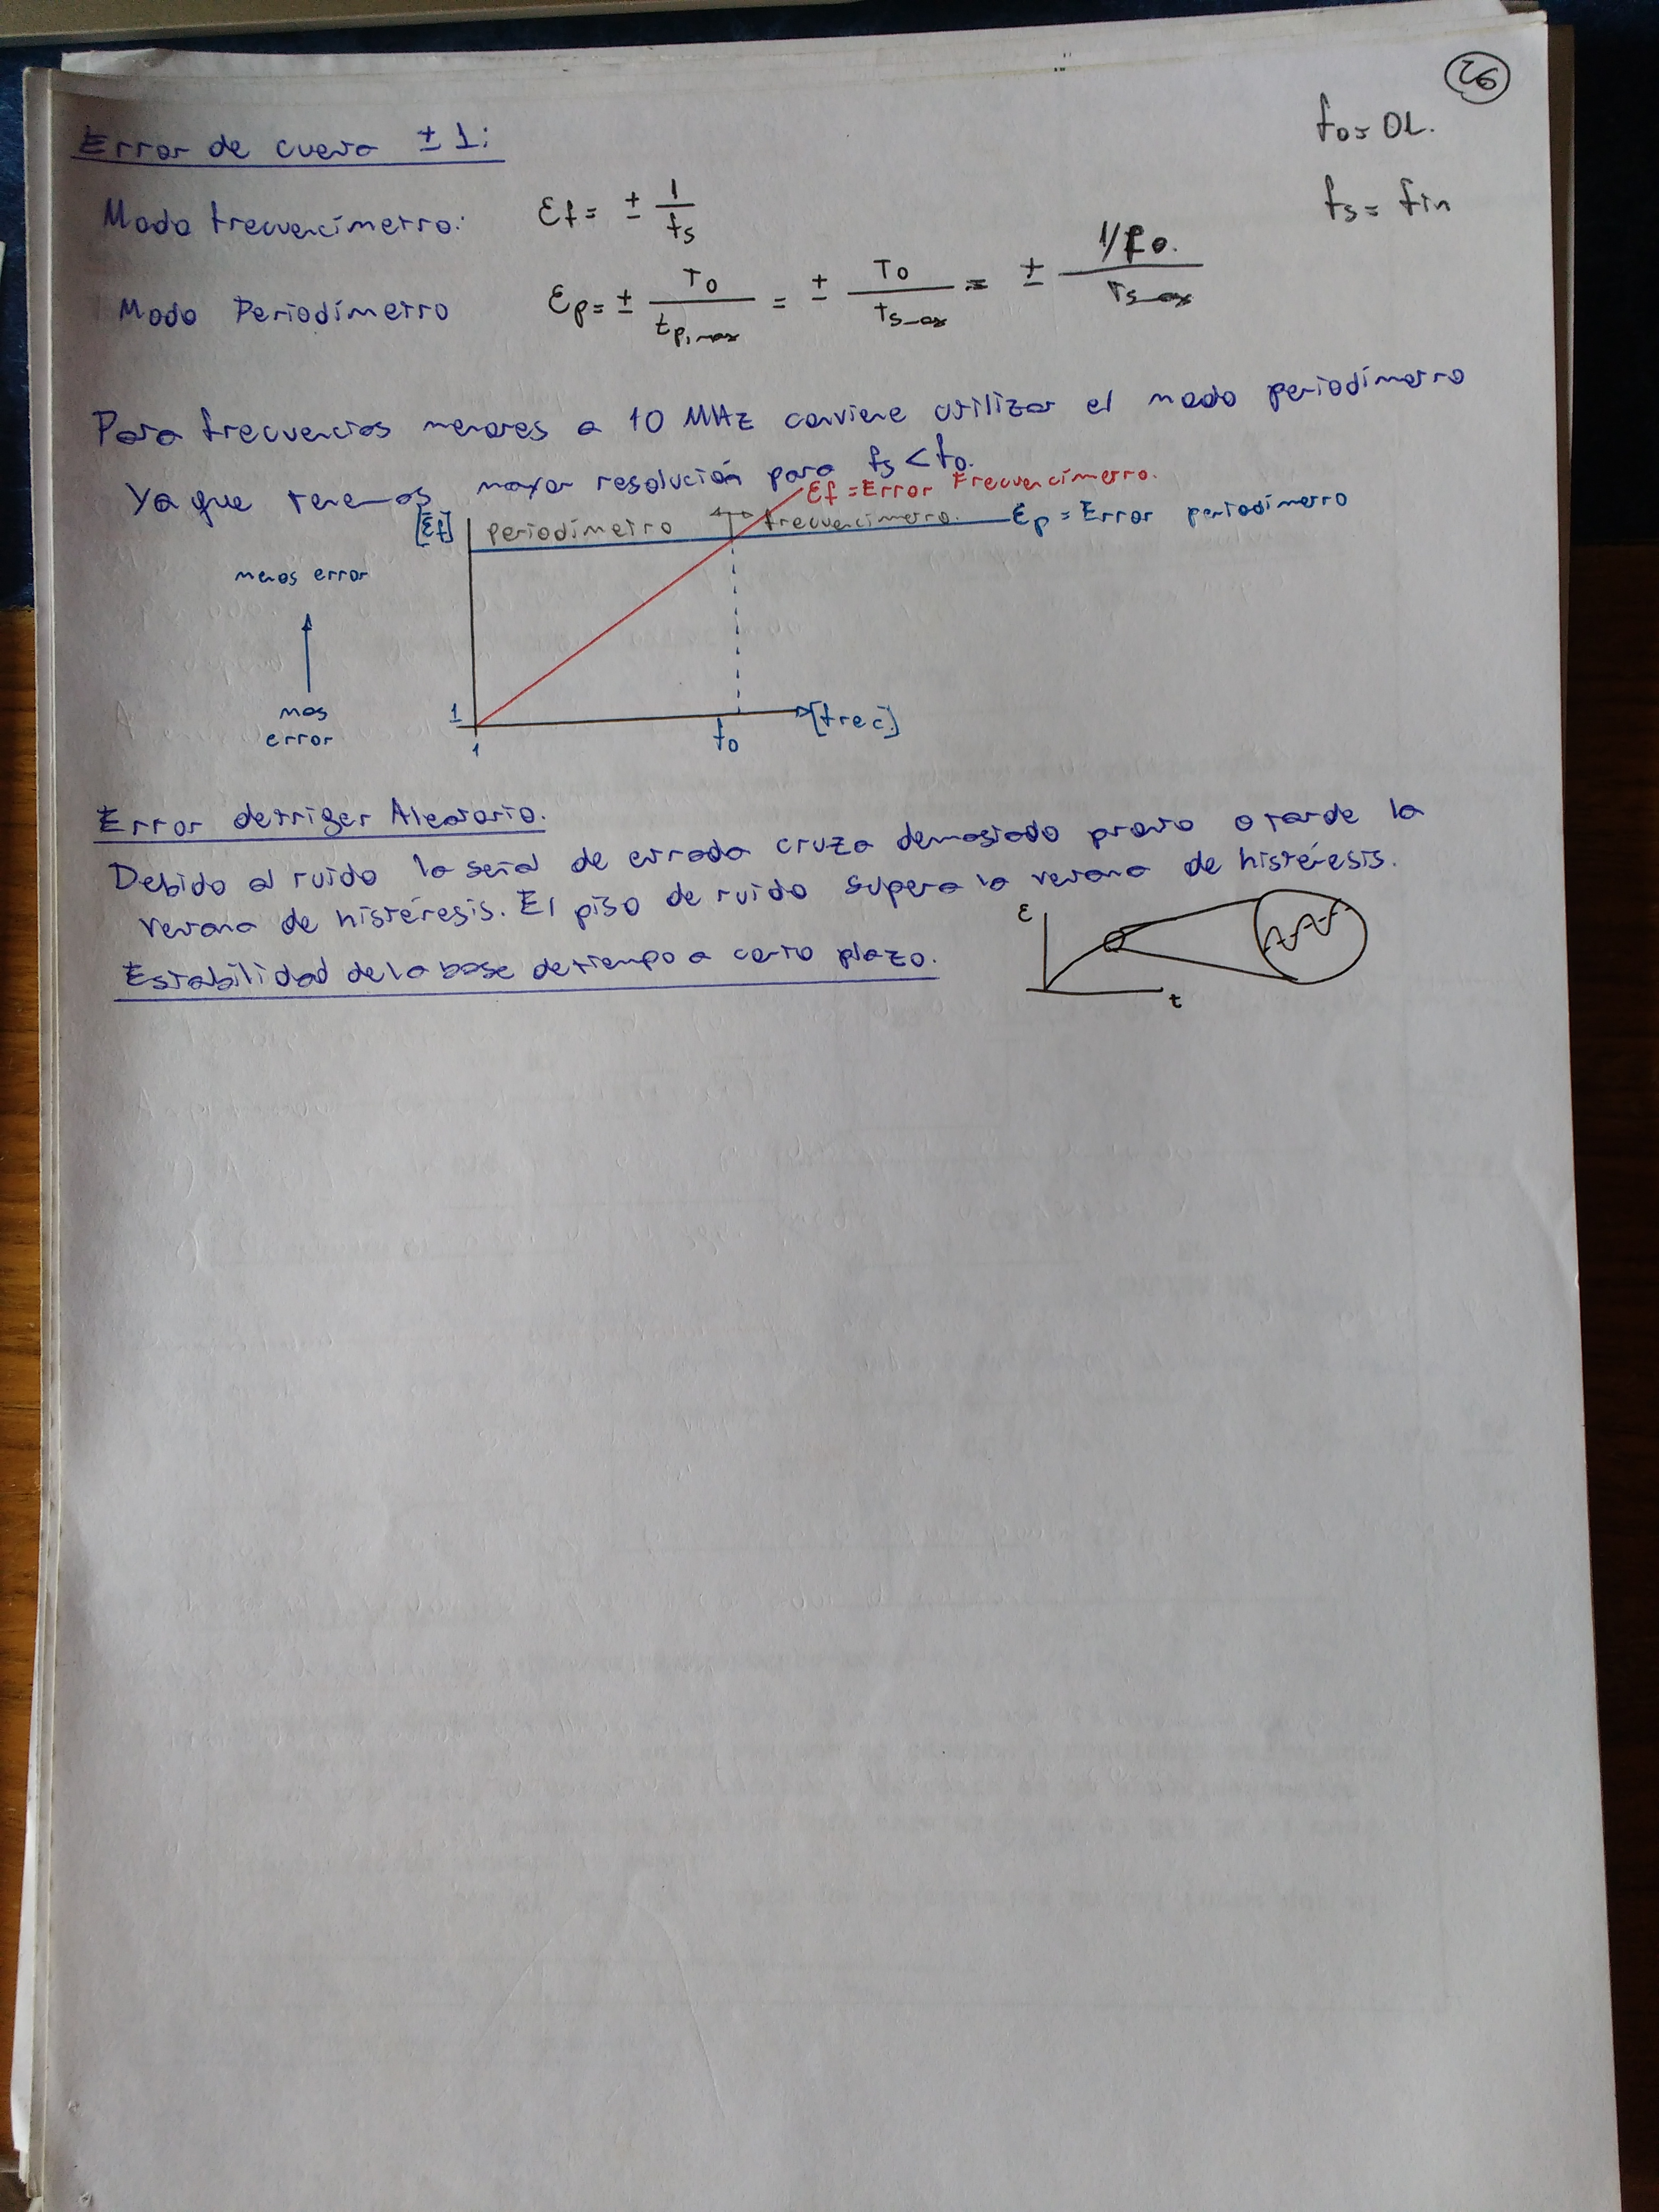 26
Error de cuenta ± 1:
fo = OL.
fs = fin
Modo frecuencímetro: Ef = ± 1/fs
Modo Periodímetro Ep = ± To/tp,max = ± To/ts_max = ± 1/fo./Ts_max
Para frecuencias menores a 10 MHz conviene utilizar el modo periodímetro
Ya que tenemos mayor resolución para fs < fo.
Ef = Error Frecuencímetro.
[Ef] periodímetro frecuencimetro. Ep = Error periodímetro
menos error
mas
error
1
1 fo [frec]
Error de triger Aleatorio.
Debido al ruido la señal de entrada cruza demasiado pronto o tarde la
ventana de histéresis. El piso de ruido supera la ventana de histéresis.
Estabilidad de la base de tiempo a corto plazo.
ε
t